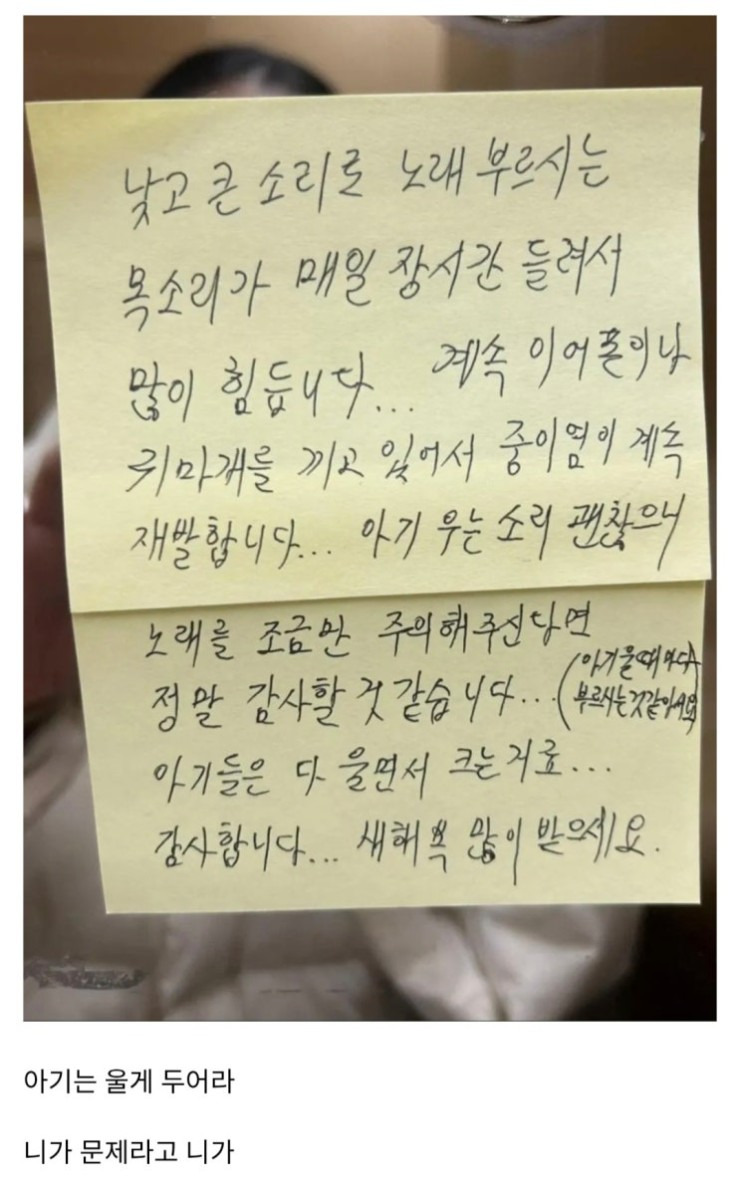 낮고 큰 소리로 노래 부르시는
목소리가 매일 장시간 들려서
많이 힘듭니다... 계속 이어폰이나
귀마개를 끼고 있어서 중이염이 계속
재발합니다... 아기 우는 소리 괜찮으니
노래를 조금만 주의해주신다면
정말 감사할 것 같습니다... (아기 울때마다
부르시는것같아서요)
아기들은 다 울면서 크는거죠...
감사합니다... 새해 복 많이 받으세요.
아기는 울게 두어라
니가 문제라고 니가